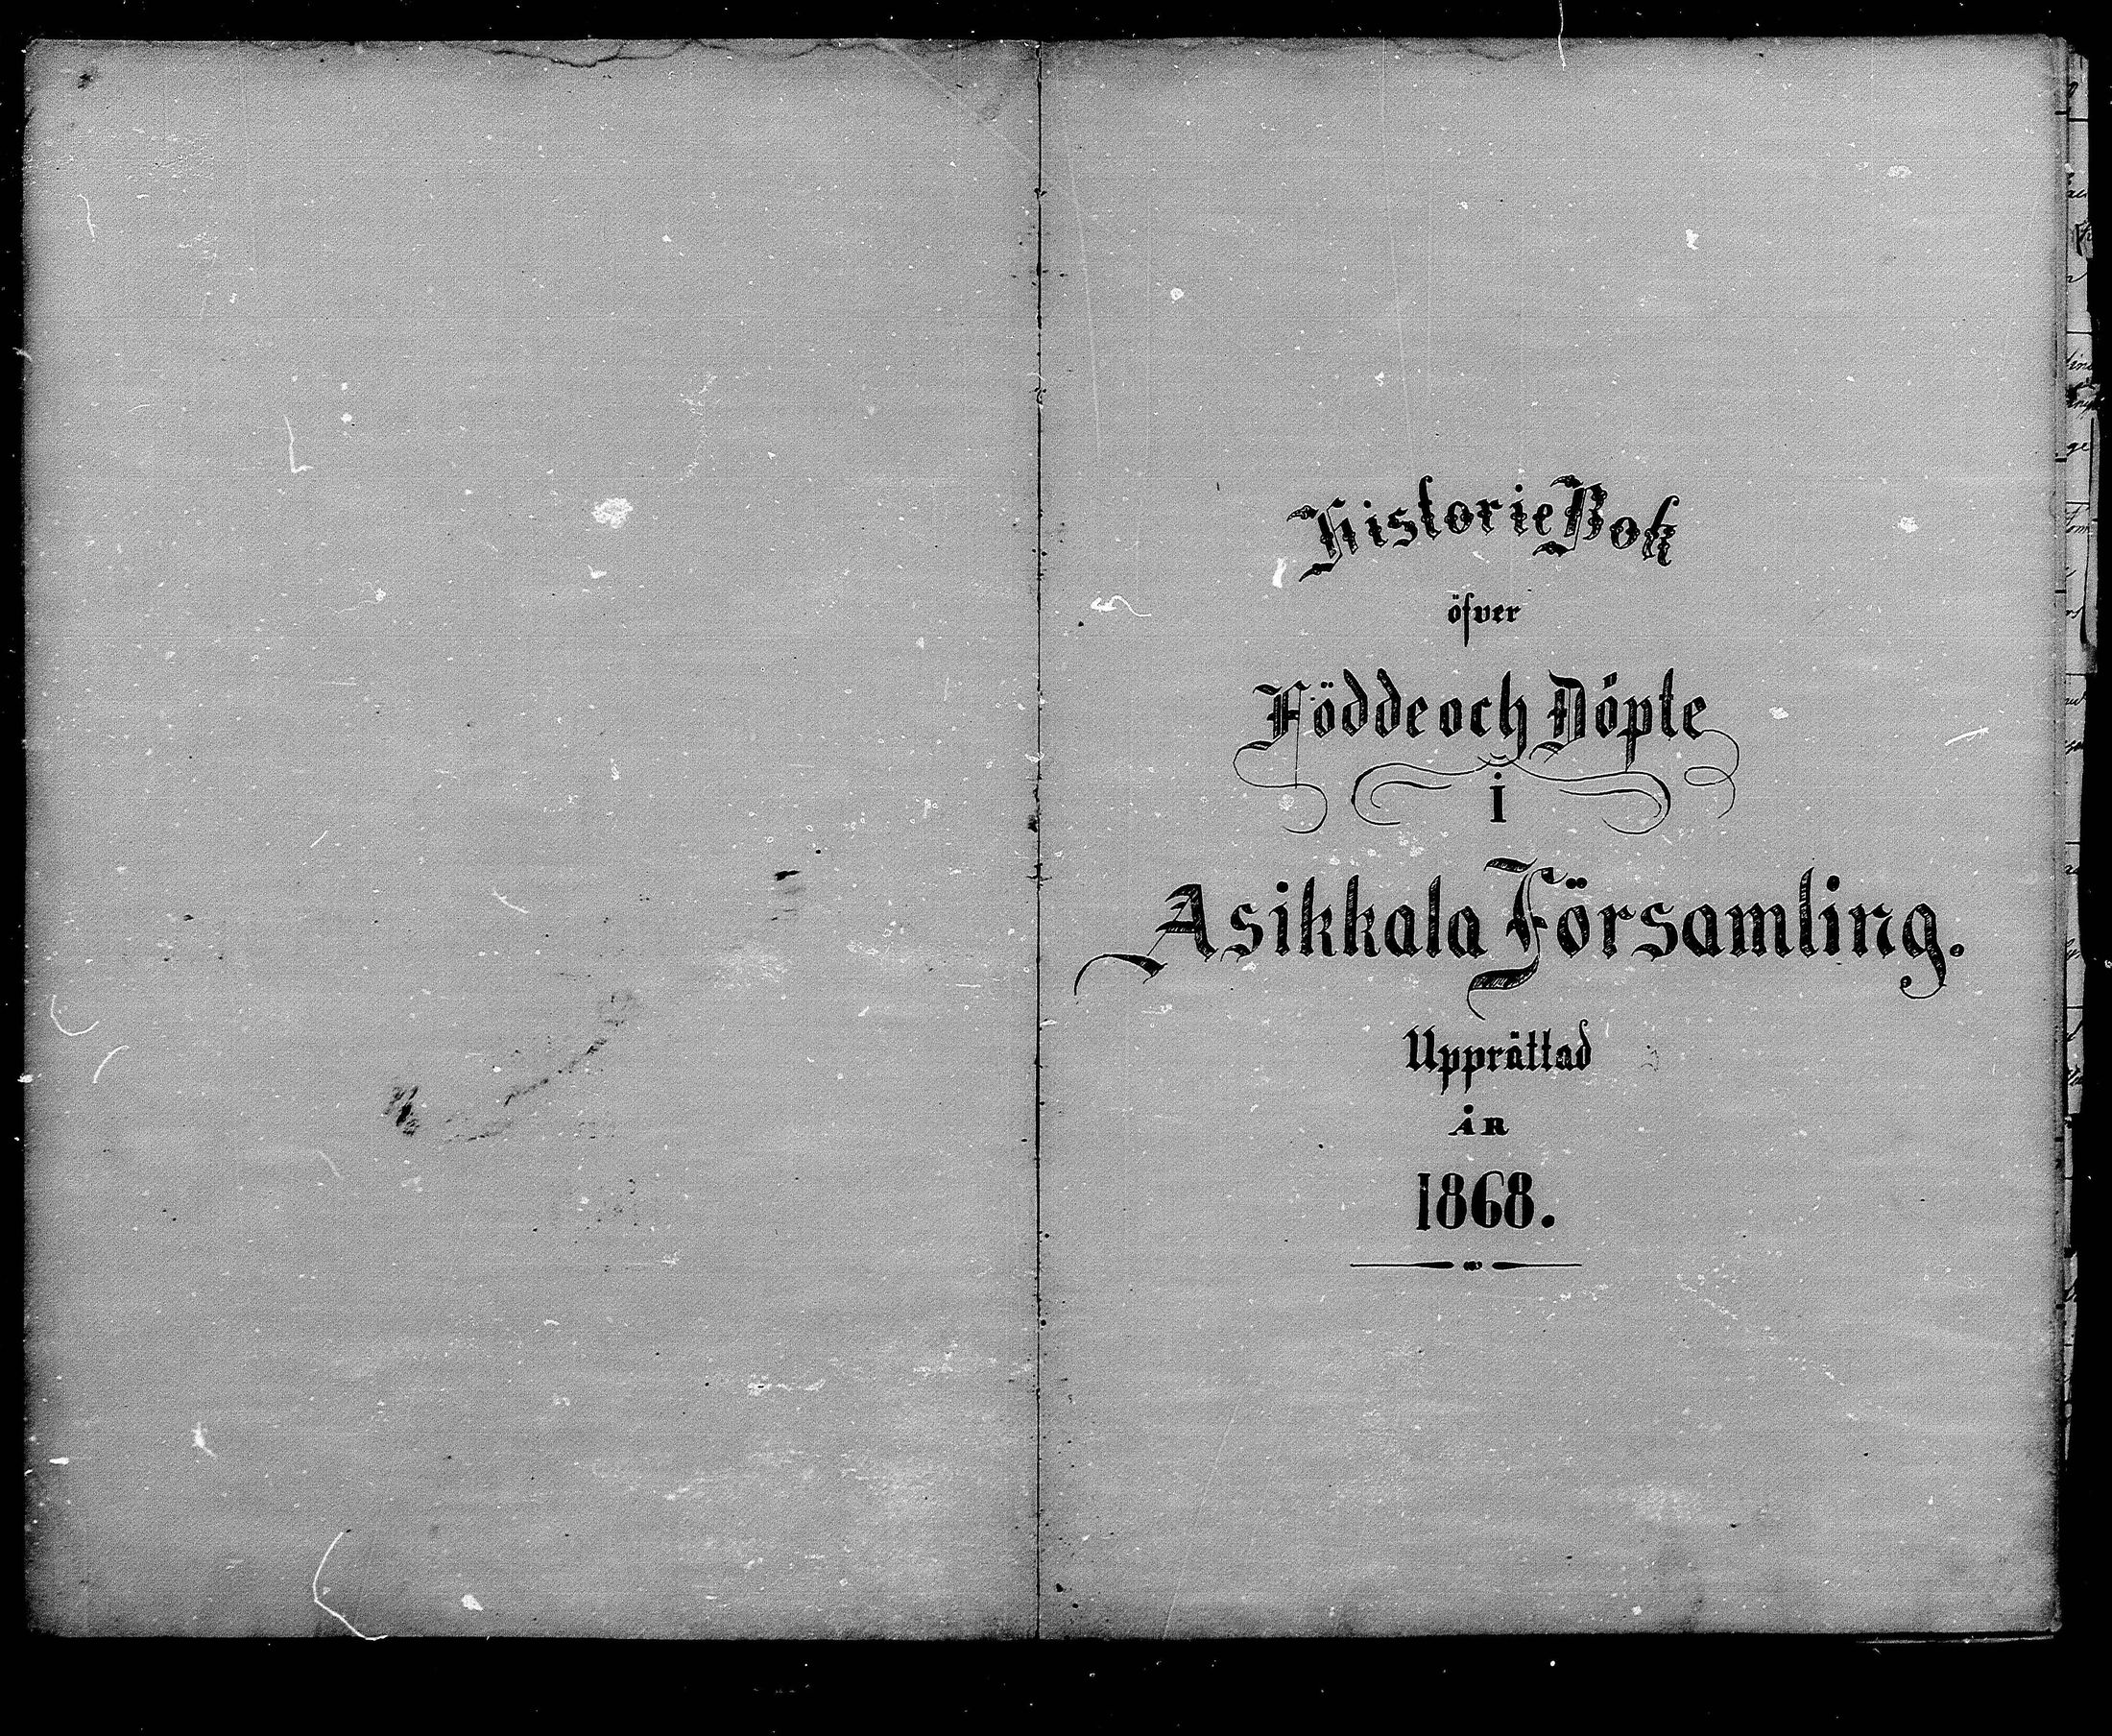 Historie Bok
öfver
Födde och Döpte
i
Asikkala Församling.
Upprättad
ÅR
1868.